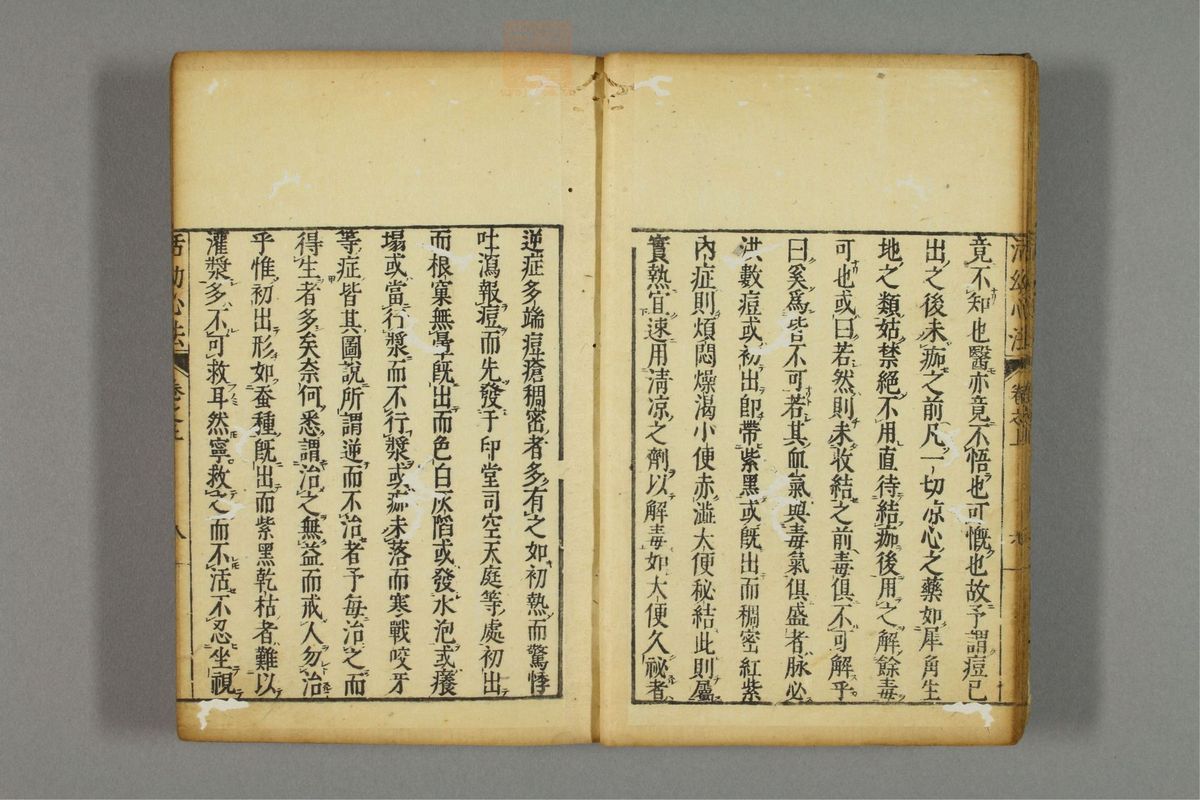 竟不知也醫亦竟不悟也可慨也故予謂痘已
出之後未痂之前凡一切凉心之藥如犀角生
地之類姑禁絕不用直待結痂後用之解餘毒
可也或曰若然則未收結之前毒俱不可解乎
曰奚爲皆不可若其血氣與毒氣俱盛者脉必
洪數痘或初出卽帶紫黑或旣出而稠密紅紫
內症則煩悶燥渴小便赤澁大便秘結此則屬
實熱宜速用清凉之劑以解毒如大便久祕者
逆症多端痘瘡稠密者多有之如初熱而驚悸
吐瀉報痘而先發于印堂司空天庭等處初出
而根窠無暈旣出而色白灰陷或發水泡或癢
塌或當行漿而不行漿或痂未落而寒戰咬牙
等症皆其圖說所謂逆而不治者予每治之而
得生者多矣奈何悉謂治之無益而戒人勿治
乎惟初出形如蚕種旣出而紫黑乾枯者難以
灌漿多不可救耳然寧救之而不活不忍坐視
活幼心法
卷之上
八